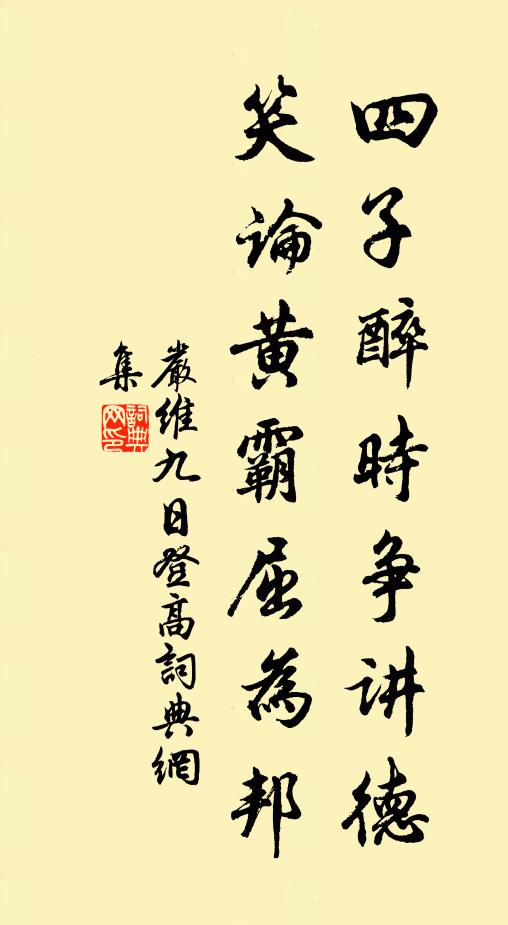 四子醉時争讲德
笑論黄霸屈為邦
嚴維九日登高詞典網
集
詞典
网印